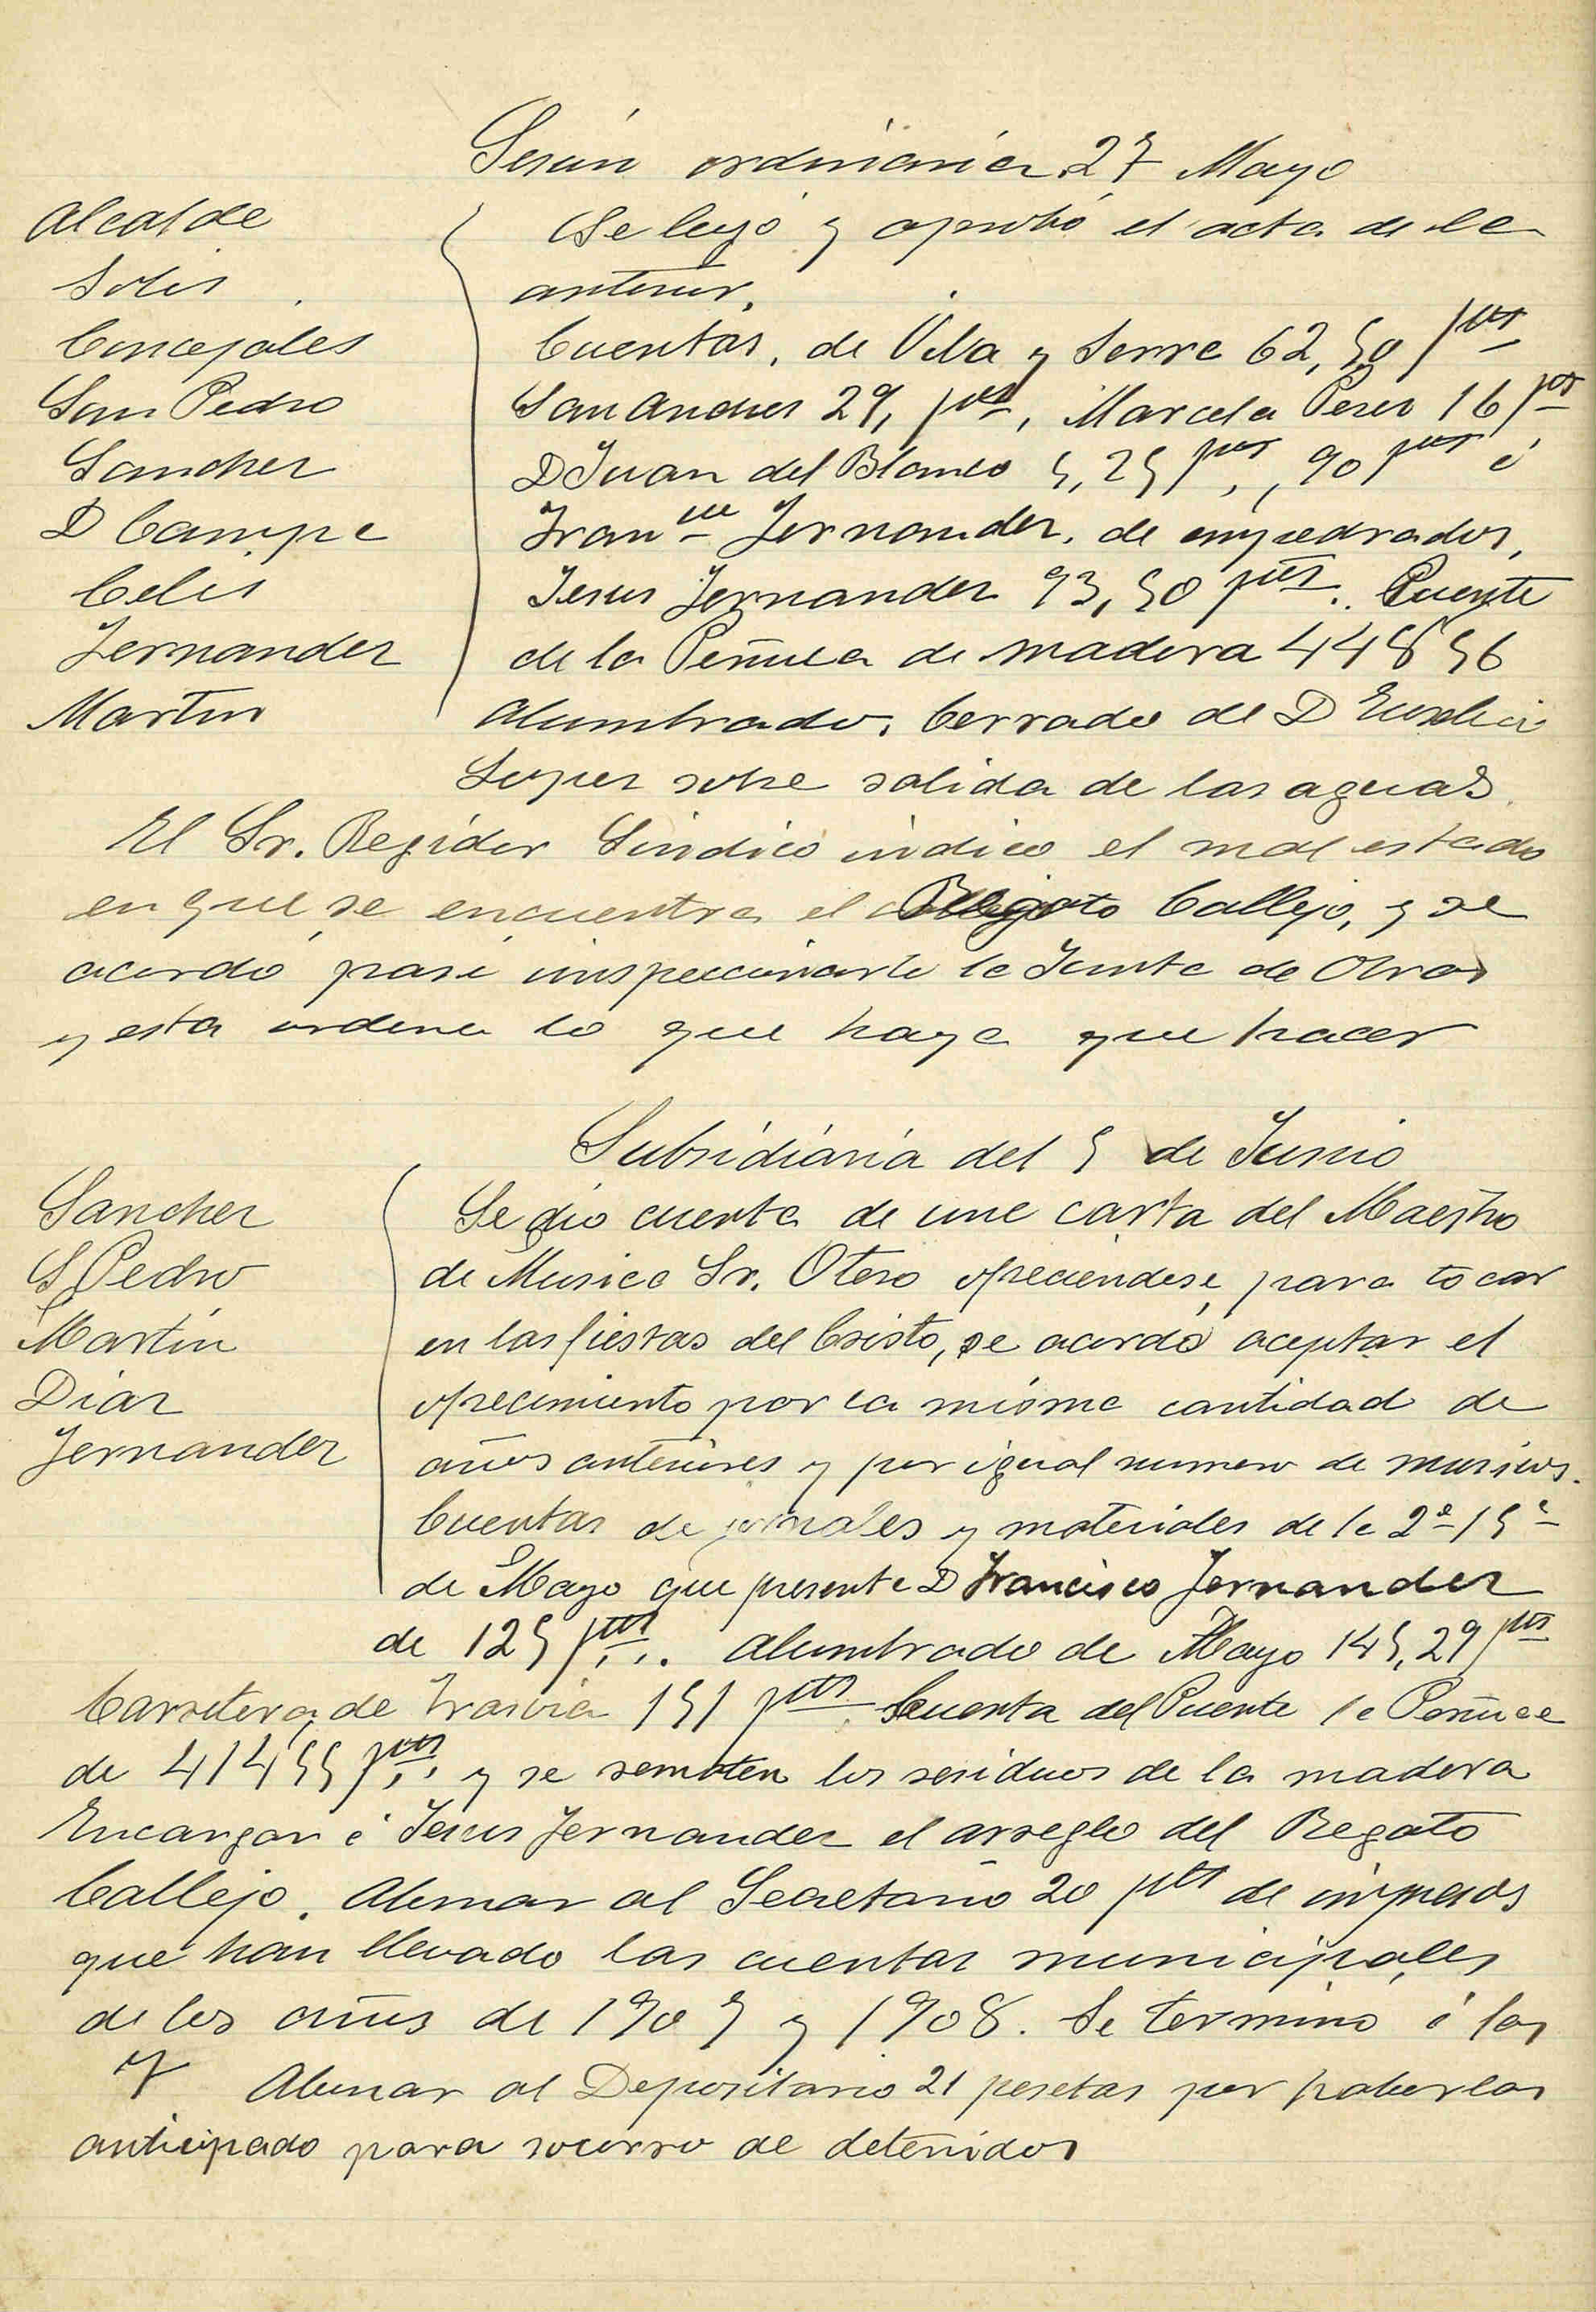 Sesión ordinaria 27 Mayo
Alcalde
Solis
Concejales
San Pedro
Sanchez
D Campa
Celis
Fernandez
Martin
Se leyó y aprobó el acta de la
anterior.
Cuentas, de Vila y Serra 62,50 pts
San Andres 29, pts, Marcela Perez 16 pts
D Juan del Blanco 5,25 pts, 90 pts á
Franco Fernandez. de empedrados,
Jesus Fernandez 93,50 pts. Puente
de la Peñuca de madera 448 56
Alumbrado. Cerrado de D Eusebio
Lopez sobre salida de las aguas
El Sr. Regidor Sindico indico el mal estado
en que se encuentra el Regato Callejo, y se
acordó pase inspeccionarle la Junta de Obras
y esta ordene lo que haya que hacer
Subsidiaria del 5 de Junio
Sanchez
S Pedro
Martin
Diaz
Fernandez
Se dio cuenta de una carta del Maestro
de Musica Sr. Otero ofreciendose para tocar
en las fiestas del Cristo, se acordó aceptar el
ofrecimiento por la misma cantidad de
años anteriores y por igual numero de musicos.
Cuentas de jornales y materiales de la 2ª 15ª
de Mayo que presenta D Francisco Fernandez
de 125 pts. Alumbrado de Mayo 145,29 pts
Carretera de Trasvia 151 pts. Cuenta del Puente la Peñuca
de 414 55 pts. y se rematen los residuos de la madera
Encargar á Jesus Fernandez el arreglo del Regato
Callejo. Abonar al Secretario 20 pts de impresos
que han llevado las cuentas municipales
de los años de 1907 y 1908. Se terminó á las
7 Abonar al Depositario 21 pesetas por haberlas
anticipado para socorro de detenidos